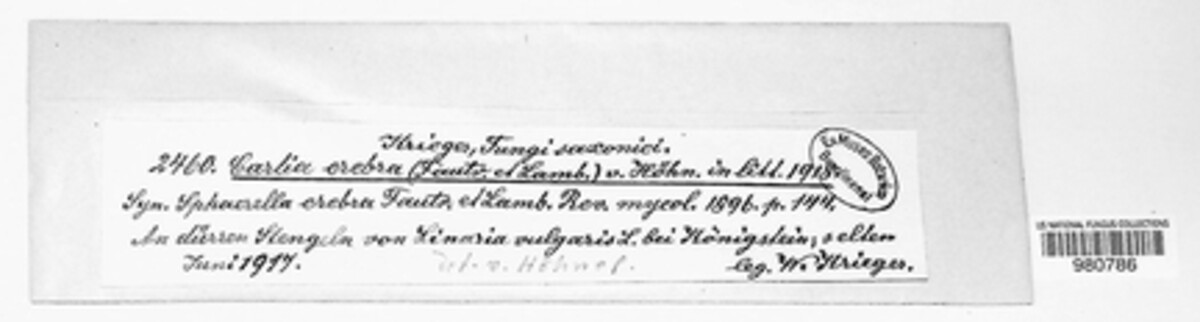 Krieger, Fungi saxonici.
2460. Carlia crebra (Fautr. et Lamb.) v. Höhn. in litt. 1918.
Syn. Sphaerella crebra Fautr. et Lamb. Rev. mycol. 1896. p. 144.
An dürren Stengeln von Linaria vulgaris L. bei Königstein, selten
Juni 1917. det. v. Höhnel. leg. W. Krieger.
Ex Museo Botanico
US NATIONAL FUNGUS COLLECTIONS
980786